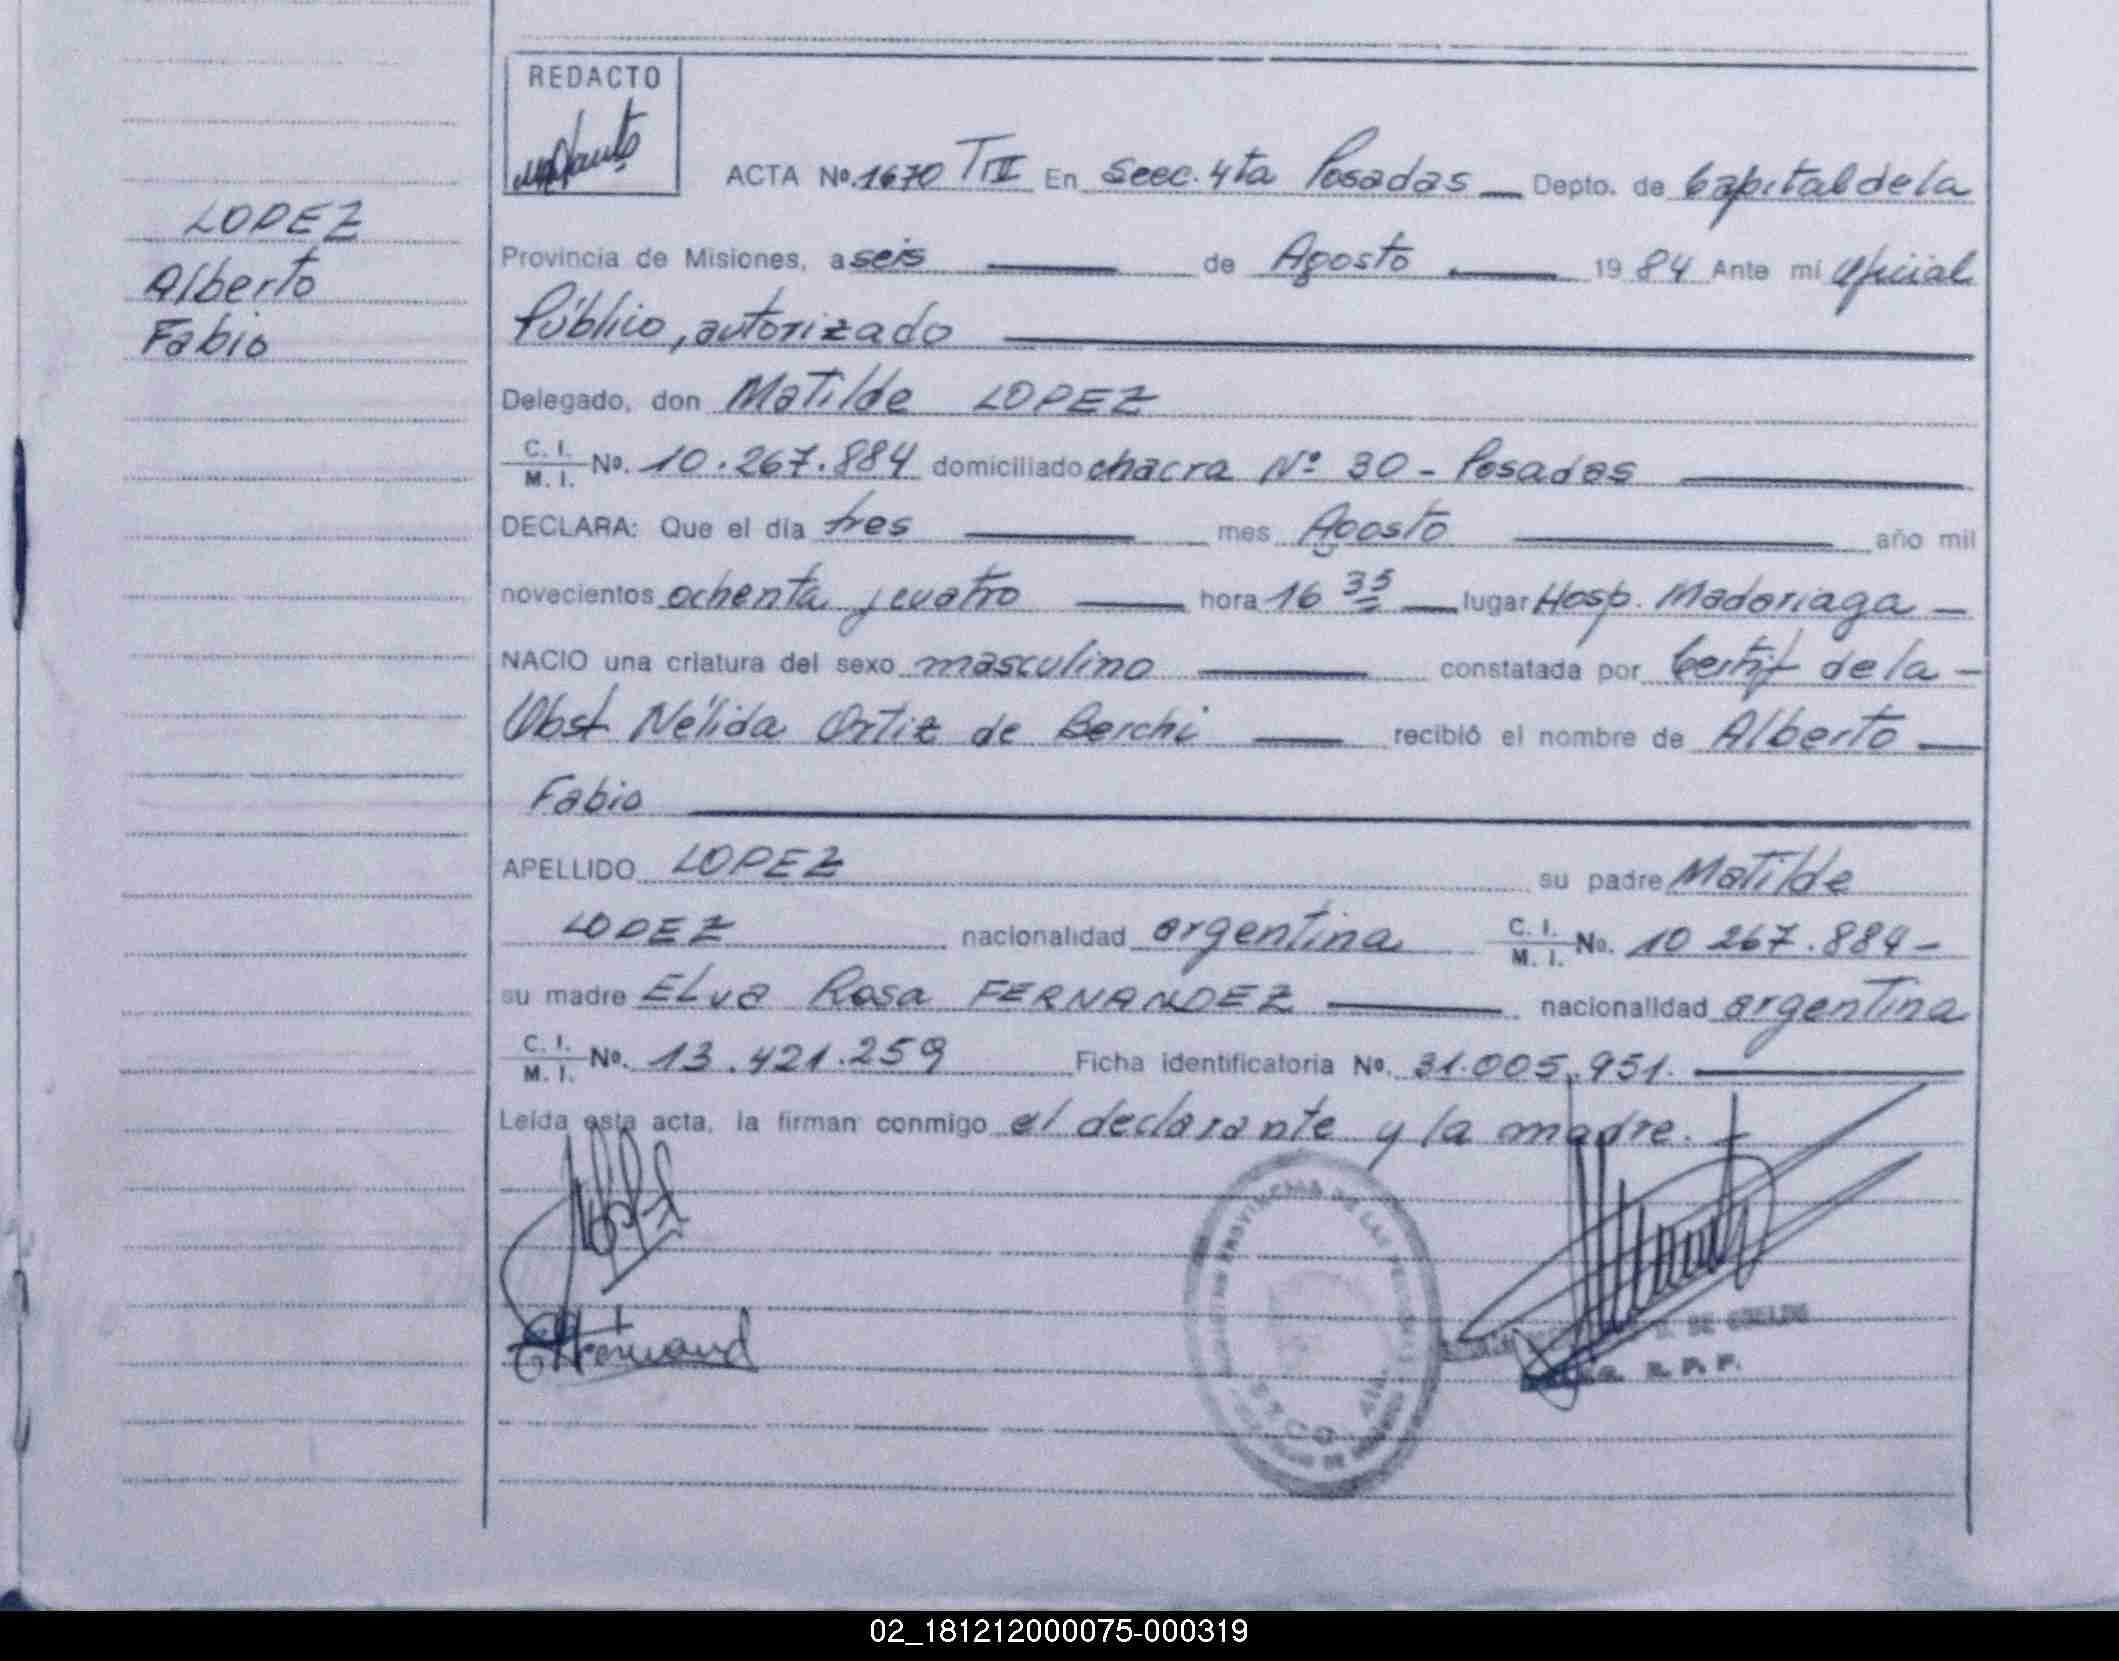 REDACTO
ACTA No. 1670 TII En Secc. 4ta Posadas Depto. de Capital de la
LOPEZ
Alberto
Fabio
Provincia de Misiones, a seis de Agosto 1984 Ante mí Oficial
Público, autorizado
Delegado, don Matilde LOPEZ
C. I. M. I. No. 10.267.884 domiciliado chacra Nº 30 - Posadas
DECLARA: Que el día tres mes Agosto año mil
novecientos ochenta y cuatro hora 16 35 lugar Hosp. Madariaga
NACIO una criatura del sexo masculino constatada por Certif de la
Obst Nélida Ortiz de Berchi recibió el nombre de Alberto
Fabio
APELLIDO LOPEZ su padre Matilde
LOPEZ nacionalidad argentina C. I. M. I. No. 10 267.884-
su madre ELva Rosa FERNANDEZ nacionalidad argentina
C. I. M. I. No. 13.421.259 Ficha identificatoria No. 31.005.951.
Leída esta acta, la firman conmigo el declarante y la madre.
PROVINCIA DE LAS
R. P. P.
02_181212000075-000319